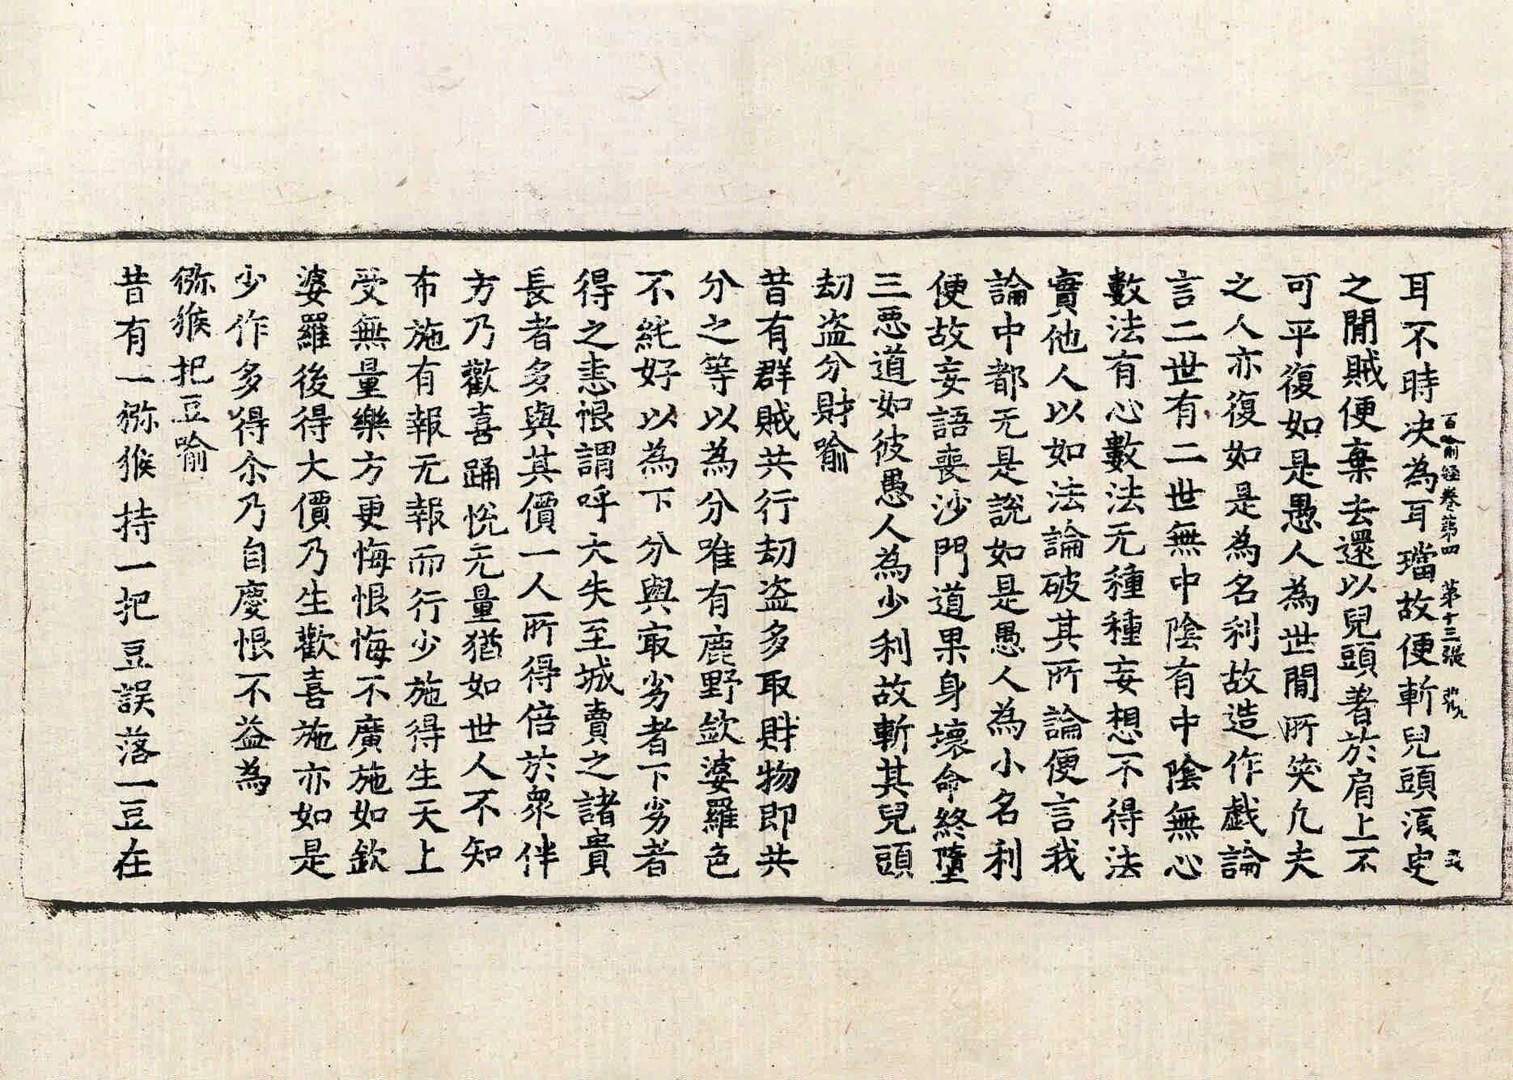 百喻經卷第四 第十三張
耳不時決為耳璫故便斬兒頭湏㬰
之閒賊便棄去還以兒頭著於肩上不
可平復如是愚人為世閒所笑凢夫
之人亦復如是為名利故造作戯論
言二世有二世無中陰有中陰無心
數法有心數法无種種妄想不得法
實他人以如法論破其所論便言我
論中都无是說如是愚人為小名利
便故妄語喪沙門道果身壞命終墮
三惡道如彼愚人為少利故斬其兒頭
劫盜分財喻
昔有群賊共行劫盜多取財物即共
分之等以為分唯有鹿野欽婆羅色
不純好以為下分與㝡劣者下劣者
得之恚恨謂呼大失至城賣之諸貴
長者多與其價一人所得倍於衆伴
方乃歡喜踊悅无量猶如世人不知
布施有報无報而行少施得生天上
受無量樂方更悔恨悔不廣施如欽
婆羅後得大價乃生歡喜施亦如是
少作多得尒乃自慶恨不益為
獼猴把豆喻
昔有一獼猴持一把豆誤落一豆在